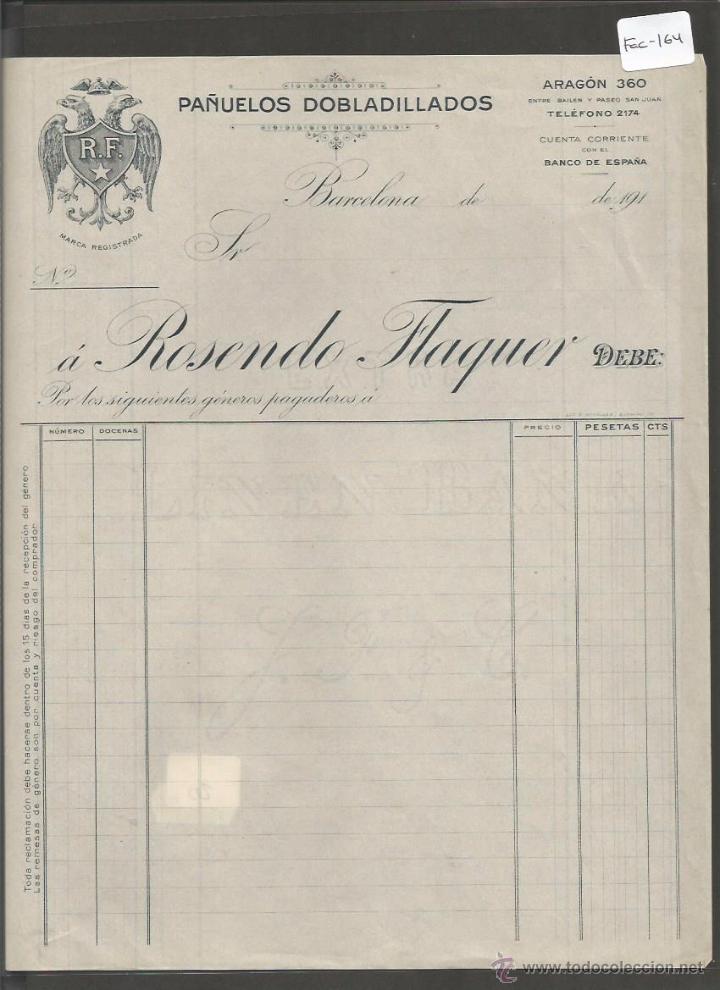 Fec-164
R.F.
MARCA REGISTRADA
PAÑUELOS DOBLADILLADOS
ARAGÓN 360
ENTRE BAILEN Y PASEO SAN JUAN
TELÉFONO 2174
CUENTA CORRIENTE
CON EL
BANCO DE ESPAÑA
Barcelona de de 191
Sr
Nº
á Rosendo Flaquer DEBE:
Por los siguientes géneros pagaderos á
NÚMERO DOCENAS PRECIO PESETAS CTS
Toda reclamación debe hacerse dentro de los 15 días de la recepción del género
Las remesas de género son por cuenta y riesgo del comprador
www.todocoleccion.net